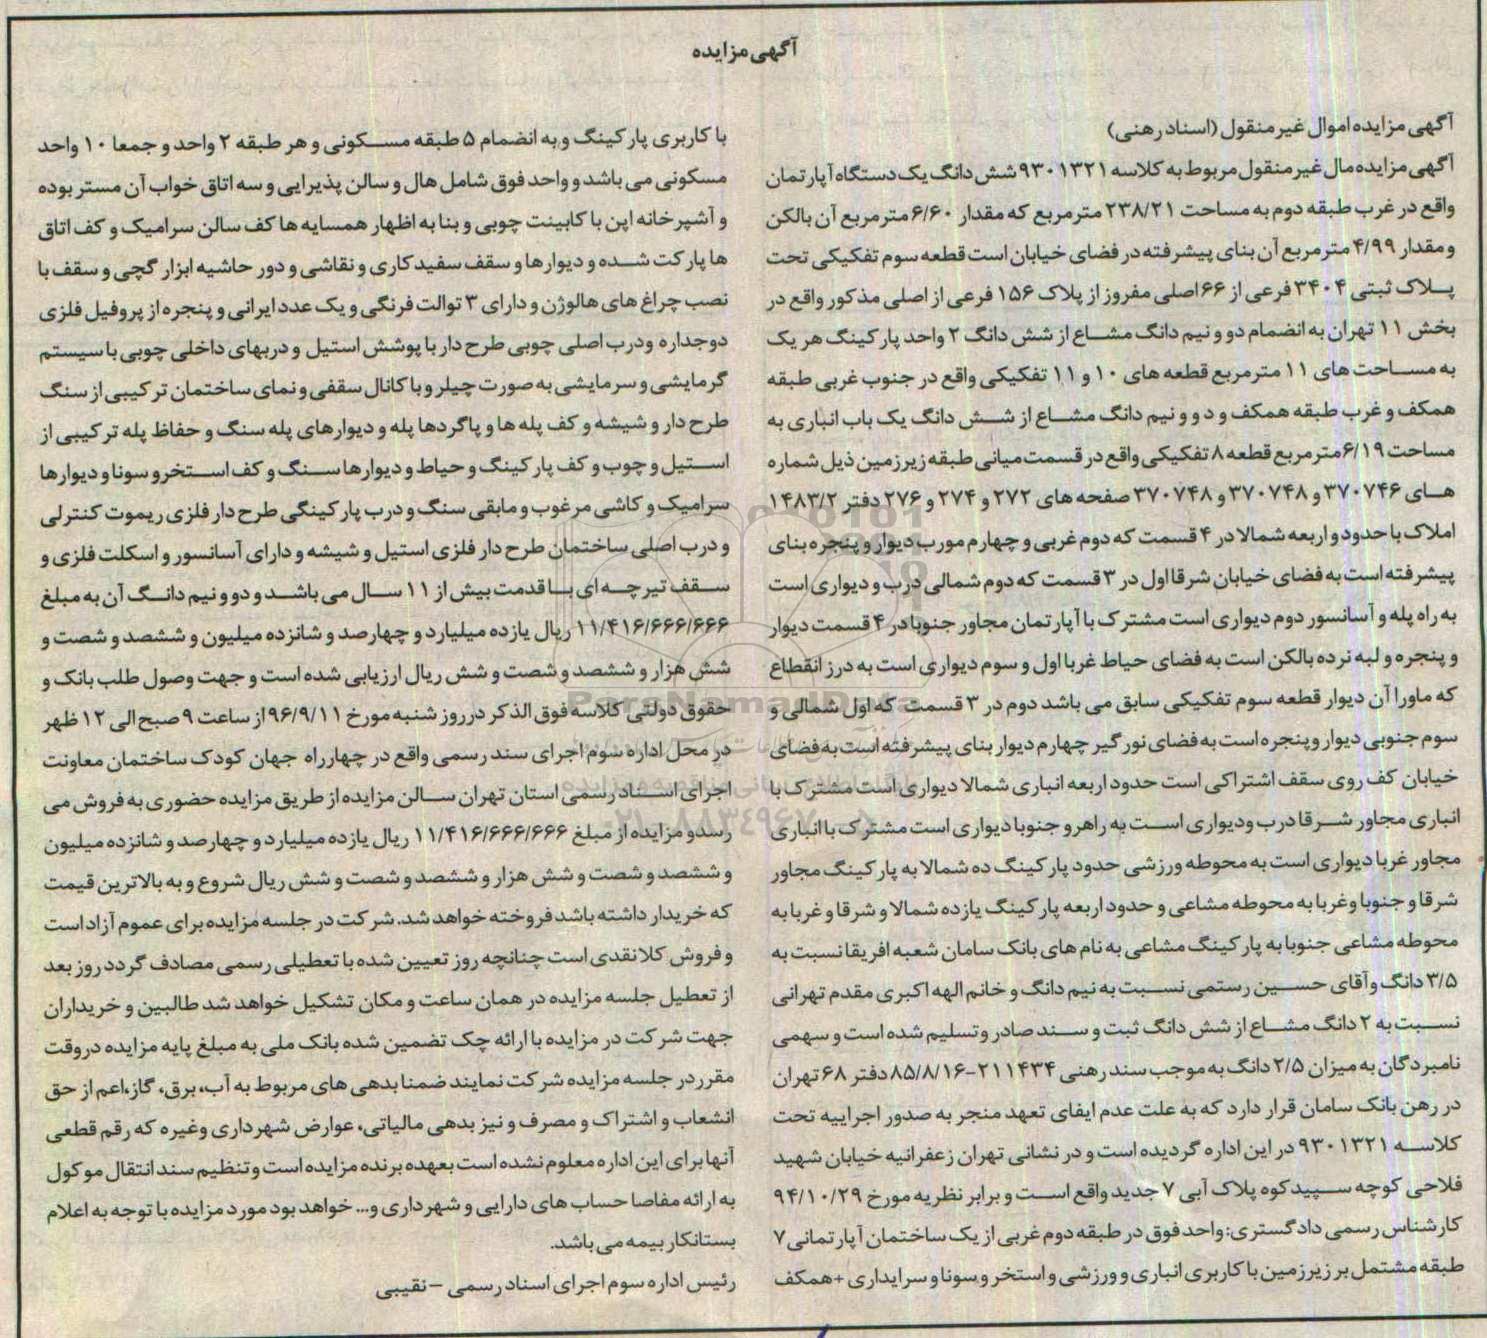 آگهی مزایده
آگهی مزایده اموال غیر منقول (اسناد رهنی)
آگهی مزایده مال غیر منقول مربوط به کلاسه ۹۳۰۱۳۲۱ شش دانگ یک دستگاه آپارتمان
واقع در غرب طبقه دوم به مساحت ۲۳۸/۲۱ مترمربع که مقدار ۶/۶۰ مترمربع آن بالکن
و مقدار ۴/۹۹ مترمربع آن بنای پیشرفته در فضای خیابان است قطعه سوم تفکیکی تحت
پلاک ثبتی ۳۴۰۴ فرعی از ۶۶ اصلی مفروز از پلاک ۱۵۶ فرعی از اصلی مذکور واقع در
بخش ۱۱ تهران به انضمام دو و نیم دانگ مشاع از شش دانگ ۲ واحد پارکینگ هر یک
به مساحت های ۱۱ مترمربع قطعه های ۱۰ و ۱۱ تفکیکی واقع در جنوب غربی طبقه
همکف و غرب طبقه همکف و دو و نیم دانگ مشاع از شش دانگ یک باب انباری به
مساحت ۶/۱۹ مترمربع قطعه ۸ تفکیکی واقع در قسمت میانی طبقه زیرزمین ذیل شماره
های ۳۷۰۷۴۶ و ۳۷۰۷۴۸ و ۳۷۰۷۴۸ صفحه های ۲۷۲ و ۲۷۴ و ۲۷۶ دفتر ۱۴۸۳/۲
املاک با حدود و اربعه شمالا در ۴ قسمت که دوم غربی و چهارم مورب دیوار و پنجره بنای
پیشرفته است به فضای خیابان شرقا اول در ۳ قسمت که دوم شمالی درب و دیواری است
به راه پله و آسانسور دوم دیواری است مشترک با آپارتمان مجاور جنوبا در ۴ قسمت دیوار
و پنجره و لبه نرده بالکن است به فضای حیاط غربا اول و سوم دیواری است به درز انقطاع
که ماورا آن دیوار قطعه سوم تفکیکی سابق می باشد دوم در ۳ قسمت که اول شمالی و
سوم جنوبی دیوار و پنجره است به فضای نورگیر چهارم دیوار بنای پیشرفته است به فضای
خیابان کف روی سقف اشتراکی است حدود اربعه انباری شمالا دیواری است مشترک با
انباری مجاور شرقا درب ودیواری است به راهرو جنوبا دیواری است مشترک با انباری
مجاور غربا دیواری است به محوطه ورزشی حدود پارکینگ ده شمالا به پارکینگ مجاور
شرقا و جنوبا وغربا به محوطه مشاعی و حدود اربعه پارکینگ یازده شمالا و شرقا و غربا به
محوطه مشاعی جنوبا به پارکینگ مشاعی به نام های بانک سامان شعبه افریقا نسبت به
۳/۵ دانگ و آقای حسین رستمی نسبت به نیم دانگ و خانم الهه اکبری مقدم تهرانی
نسبت به ۲ دانگ مشاع از شش دانگ ثبت و سند صادر و تسلیم شده است و سهمی
نامبردگان به میزان ۲/۵ دانگ به موجب سند رهنی ۲۱۱۴۳۴-۸۵/۸/۱۶ دفتر ۶۸ تهران
در رهن بانک سامان قرار دارد که به علت عدم ایفای تعهد منجر به صدور اجراییه تحت
کلاسه ۹۳۰۱۳۲۱ در این اداره گردیده است و در نشانی تهران زعفرانیه خیابان شهید
فلاحی کوچه سپیدکوه پلاک آبی ۷ جدید واقع است و برابر نظریه مورخ ۹۴/۱۰/۲۹
کارشناس رسمی دادگستری: واحد فوق در طبقه دوم غربی از یک ساختمان آپارتمانی ۷
طبقه مشتمل بر زیرزمین با کاربری انباری و ورزشی و استخر و سونا و سرایداری + همکف
با کاربری پارکینگ و به انضمام ۵ طبقه مسکونی و هر طبقه ۲ واحد و جمعا ۱۰ واحد
مسکونی می باشد و واحد فوق شامل هال و سالن پذیرایی و سه اتاق خواب آن مستر بوده
و آشپرخانه اپن با کابینت چوبی و بنا به اظهار همسایه ها کف سالن سرامیک و کف اتاق
ها پارکت شده و دیوارها و سقف سفیدکاری و نقاشی و دور حاشیه ابزار گچی و سقف با
نصب چراغ های هالوژن و دارای ۳ توالت فرنگی و یک عدد ایرانی و پنجره از پروفیل فلزی
دوجداره ودرب اصلی چوبی طرح دار با پوشش استیل و دربهای داخلی چوبی با سیستم
گرمایشی و سرمایشی به صورت چیلر و با کانال سقفی و نمای ساختمان ترکیبی از سنگ
طرح دار و شیشه و کف پله ها و پاگردها پله و دیوارهای پله سنگ و حفاظ پله ترکیبی از
استیل و چوب و کف پارکینگ و حیاط و دیوارها سنگ و کف استخر و سونا و دیوارها
سرامیک و کاشی مرغوب و مابقی سنگ و درب پارکینگی طرح دار فلزی ریموت کنترلی
و درب اصلی ساختمان طرح دار فلزی استیل و شیشه و دارای آسانسور و اسکلت فلزی و
سقف تیرچه ای با قدمت بیش از ۱۱ سال می باشد و دو و نیم دانگ آن به مبلغ
۱۱/۴۱۶/۶۶۶/۶۶۶ ریال یازده میلیارد و چهارصد و شانزده میلیون و ششصد و شصت و
شش هزار و ششصد و شصت و شش ریال ارزیابی شده است و جهت وصول طلب بانک و
حقوق دولتی کلاسه فوق الذکر در روز شنبه مورخ ۹۶/۹/۱۱ از ساعت ۹ صبح الی ۱۲ ظهر
در محل اداره سوم اجرای سند رسمی واقع در چهارراه جهان کودک ساختمان معاونت
اجرای اسناد رسمی استان تهران سالن مزایده از طریق مزایده حضوری به فروش می
رسد و مزایده از مبلغ ۱۱/۴۱۶/۶۶۶/۶۶۶ ریال یازده میلیارد و چهارصد و شانزده میلیون
و ششصد و شصت و شش هزار و ششصد و شصت و شش ریال شروع و به بالاترین قیمت
که خریدار داشته باشد فروخته خواهد شد. شرکت در جلسه مزایده برای عموم آزاد است
و فروش کلا نقدی است چنانچه روز تعیین شده با تعطیلی رسمی مصادف گردد روز بعد
از تعطیل جلسه مزایده در همان ساعت و مکان تشکیل خواهد شد طالبین و خریداران
جهت شرکت در مزایده با ارائه چک تضمین شده بانک ملی به مبلغ پایه مزایده در وقت
مقرر در جلسه مزایده شرکت نمایند ضمنا بدهی های مربوط به آب، برق، گاز، اعم از حق
انشعاب و اشتراک و مصرف و نیز بدهی مالیاتی، عوارض شهرداری وغیره که رقم قطعی
آنها برای این اداره معلوم نشده است بعهده برنده مزایده است و تنظیم سند انتقال موکول
به ارائه مفاصا حساب های دارایی و شهرداری و... خواهد بود مورد مزایده با توجه به اعلام
بستانکار بیمه می باشد.
رئیس اداره سوم اجرای اسناد رسمی – نقیبی
ParsNamadData